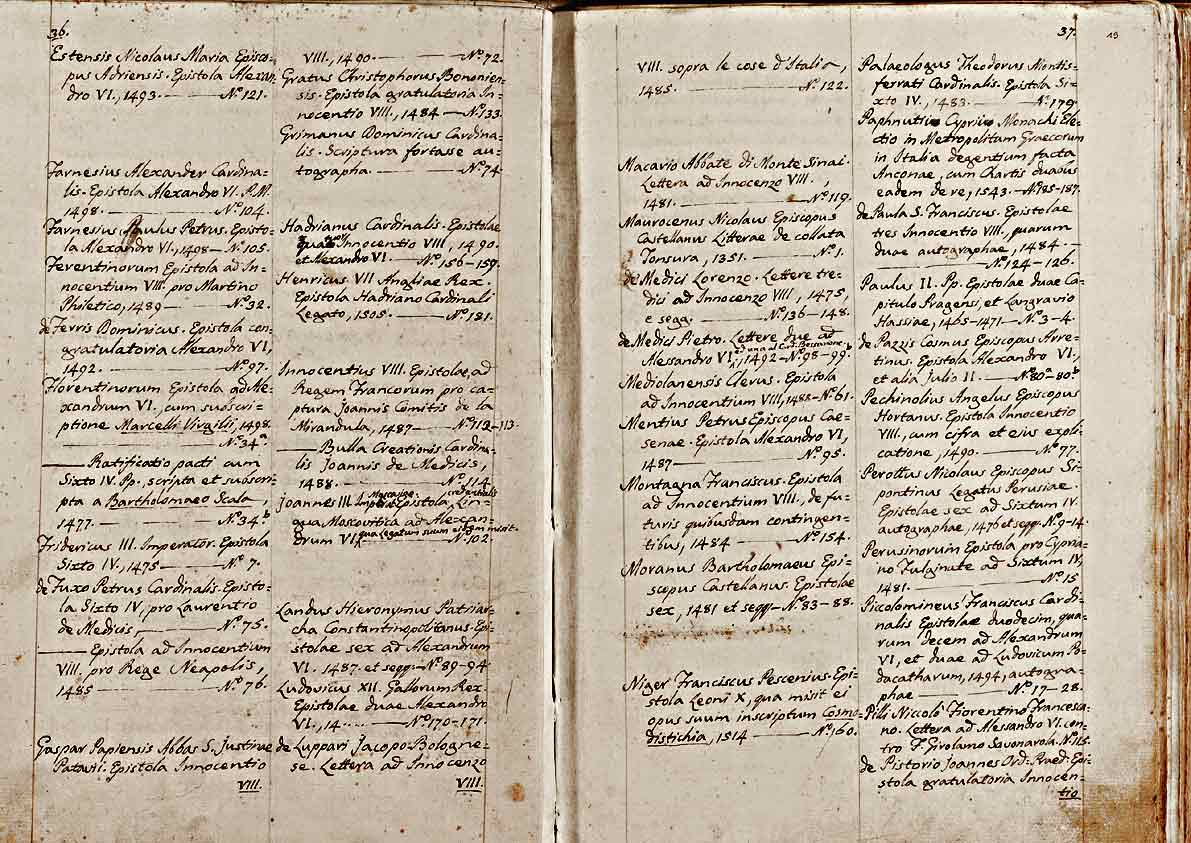 36.
Estensis Nicolaus Maria Episco-
pus Adriensis. Epistola Alexan.
dro VI., 1493. — Nº. 121.
Farnesius Alexander Cardina-
lis. Epistola Alexandro VI. P.M.
1498. — Nº. 104.
Farnesius Paulus Petrus. Episto-
la Alexandro VI., 1498 — Nº. 105.
Ferentinorum Epistola ad In-
nocentium VIII. pro Martino
Philetico, 1489 — Nº. 32.
de Ferris Dominicus. Epistola con-
gratulatoria Alexandro VI,
1492. — Nº. 97.
Florentinorum Epistola ad Ale-
xandrum VI., cum subscri-
ptione Marcelli Virgilii, 1498.
— Nº. 34ª.
— Ratificatio pacti cum
Sixto IV. Pp., scripta et subscri-
pta a Bartholomaeo Scala,
1477. — Nº. 34ᵇ
Fridericus III. Imperator. Epistola
Sixto IV., 1475 — Nº. 7.
de Fuxo Petrus Cardinalis. Episto-
la Sixto IV, pro Laurentio
de Medicis, — Nº. 75.
— Epistola ad Innocentium
VIII. pro Rege Neapolis,
1485 — Nº. 76.
Gaspar Papiensis Abbas S. Justinae
Patavii. Epistola Innocentio
VIII.
VIII., 1490. — Nº. 72.
Gratus Christophorus Bononien-
sis. Epistola gratulatoria In-
nocentio VIII., 1484 — Nº. 133.
Grimanus Dominicus Cardina-
lis. Scriptura fortasse au-
tographa. — Nº. 74
Hadrianus Cardinalis. Epistolae
quatuor Innocentio VIII, 1490.
et Alexandro VI. — Nº. 156-159.
Henricus VII Angliae Rex.
Epistola Hadriano Cardinali
Legato, 1505. — Nº. 181.
Innocentius VIII. Epistolae, ad
Regem Francorum pro ca-
ptura Joannis Comitis de la
Mirandula, 1487 — Nº. 112-113
— Bulla Creationis Cardina-
lis Joannis de Medicis,
1488. — Nº. 114
Moscoviae credentialis
Joannes III. Epistola Lin-
gua Moscovitica ad Alexan-
drum VI, qua Legatum suum eidem misit. Nº. 102.
Landus Hieronymus Patriar-
cha Constantinopolitanus. Epi-
stolae sex ad Alexandrum
VI. 1487. et seqq. — Nº. 89-94
Ludovicus XII. Gallorum Rex.
Epistolae duae Alexandro
VI., 14..... — Nº. 170-171.
de Luppari Jacopo Bologne-
se. Lettera ad Innocenzo
VIII.
37.
19
VIII. sopra le cose d'Italia,
1485. — Nº. 122.
Macario Abbate di Monte Sinai.
Lettera ad Innocenzo VIII.
1481. — Nº. 119.
Maurocenus Nicolaus Episcopus
Castellanus Litterae de collata
Tonsura, 1351. — Nº. 1.
de Medici Lorenzo. Lettere tre-
dici ad Innocenzo VIII, 1475,
e segg. — Nº. 136-148.
de Medici Pietro. Lettere due ad
Alessandro VI, ed una al Card. 1492 — Nº. 98-99.
Mediolanensis Clerus. Epistola
ad Innocentium VIII, 1485 — Nº. 61.
Mentius Petrus Episcopus Cae-
senae. Epistola Alexandro VI,
1487 — Nº. 95.
Montagna Franciscus. Epistola
ad Innocentium VIII. de fu-
turis quibusdam contingen-
tibus, 1484 — Nº. 154.
Moranus Bartholomaeus Epi-
scopus Castellanus. Epistolae
sex, 1481 et seqq. — Nº. 83-88.
Niger Franciscus Pescenius. Epi-
stola Leoni X, qua misit ei
opus suum inscriptum Cosmo-
distichia, 1514 — Nº. 160.
Palaeologus Theodorus Montis-
ferrati Cardinalis. Epistola Si-
xto IV., 1483. — Nº. 179.
Paphnutii Cyprii Monachi Ele-
ctio in Metropolitam Graecorum
in Italia degentium facta
Anconae, cum Chartis duabus
eadem de re, 1543. — Nº. 185-187.
de Paula S. Franciscus. Epistolae
tres Innocentio VIII., quarum
duae autographae, 1484. —
— Nº. 124-126.
Paulus II. Pp. Epistolae duae Ca-
pitulo Pragensi, et Langravio
Hassiae, 1465-1471 — Nº. 3-4.
de Pazzis Cosmus Episcopus Arre-
tinus. Epistola Alexandro VI.,
et alia Julio II. — Nº. 80ª-80ᵇ
Pechinolius Angelus Episcopus
Hortanus. Epistola Innocentio
VIII., cum cifra et ejus expli-
catione, 1490. — Nº. 77.
Perottus Nicolaus Episcopus Si-
pontinus Legatus Perusiae.
Epistolae sex ad Sixtum IV.
autographae, 1476 et seqq. Nº. 9-14.
Perusinorum Epistola pro Cypria-
no Fulginate ad Sixtum IV,
1481. — Nº. 15
Picolomineus Franciscus Cardi-
nalis Epistolae duodecim, qua-
rum decem ad Alexandrum
VI, et duae ad Ludovicum Po-
dacatharum, 1494, autogra-
phae — Nº. 17-28.
Pilli Niccolò Fiorentino Francesca-
no. Lettera ad Alessandro VI. con-
tro F. Girolamo Savonarola. Nº. 115.
de Pistorio Joannes Ord. Praed. Epi-
stola gratulatoria Innocen-
tio